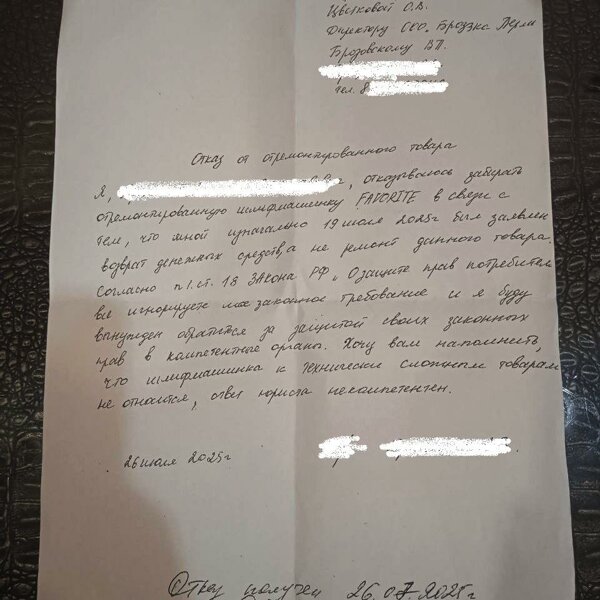 Цветковой О.В.
Директору СЕО
Бродовскому В.П.
тел. 8
Отказ от отремонтированного товара
Я, , отказываюсь забирать
отремонтированную шлифмашинку FAVORITE в связи с
тем, что мной изначально 19 июля 2025г был заявлен
возврат денежных средств, а не ремонт данного товара.
Согласно п 1. ст. 18 Закона РФ „О защите прав потребителя
вы игнорируете мое законное требование и я буду
вынужден обратиться за защитой своих законных
прав в компетентные органы. Хочу вам напомнить,
что шлифмашинка к технически сложным товарам
не относится, ответ юриста некомпетентен.
26 июля 2025г
Отказ получен 26.07.2025г